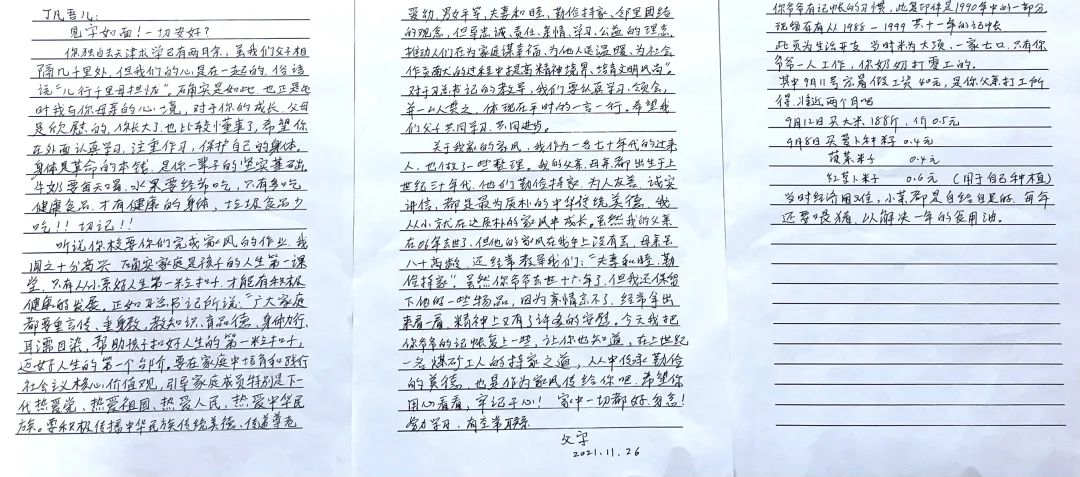 丁凡吾儿：
见字如面！一切安好？
你独自去天津求学已有两月余，虽我们父子相
隔几千里外，但我们的心是在一起的，俗话
说“儿行千里母担忧”。确实是如此，也正是此
时我与你母亲的心境，对于你的成长，父母
是欣慰的，你长大了，也比较懂事了，希望你
在外面认真学习，注重作习，保护自己的身体。
身体是革命的本钱，是你一辈子的坚实基础，
牛奶要每天喝，水果要经常吃，只有多吃
健康食品，才有健康的身体，垃圾食品少
吃！！切记！！
听说你校要你们完成家风的作业，我
闻之十分高兴，确实家庭是孩子的人生第一课
堂，只有从小系好人生第一粒扣子，才能有积极
健康的发展。正如习总书记所说：“广大家庭
都要重言传、重身教，教知识、育品德，身体力行、
耳濡目染，帮助孩子扣好人生的第一粒扣子，
迈好人生的第一个台阶。要在家庭中培育和践行
社会主义核心价值观，引导家庭成员特别是下一
代热爱党、热爱祖国、热爱人民、热爱中华民
族。要积极传播中华民族传统美德，传递尊老
爱幼、男女平等、夫妻和睦、勤俭持家、邻里团结
的观念，倡导忠诚、责任、亲情、学习、公益的理念，
推动人们在为家庭谋幸福、为他人送温暖、为社会
作贡献的过程中提高精神境界、培育文明风尚”。
对于习总书记的教导，我们要认真学习、领会，
并一以贯之，体现在平时的一言一行。希望我
们父子共同学习，共同进步。
关于我家的家风，我作为一名七十年代的过来
人，也做了一些整理。我的父亲、母亲都出生于上
世纪三十年代，他们勤俭持家、为人友善、诚实
讲信，都是最为质朴的中华传统美德，我
从小就在这质朴的家风中成长。虽然我的父亲
在06年去世了，但他的家风在我身上没有丢，母亲虽
八十高龄，还经常教导我们：“夫妻和睦，勤
俭持家”。虽然你爷爷去世十六年了，但我还保留
下他的一些物品，因为亲情忘不了，经常拿出
来看一看，精神上又有了许多的安慰。今天我把
你爷爷的记帐复上一些，让你也知道，在上世纪
一名煤矿工人的持家之道，从中传承勤俭
的美德，也是作为家风传给你吧。希望你
用心看看，牢记于心！家中一切都好，勿念！
努力学习，有空常联系
父字
2021.11.26
你爷爷有记帐的习惯，此复印件是1990年中的一部分
现留存有从1988-1999共十一年的记帐
此页为生活开支，当时米为大项，一家七口，只有你
爷爷一人工作，你奶奶打零工的。
其中9月11号宏喜假工资40元，是你父亲打工所
得，接近两个月吧
9月12日买大米188斤，1斤0.5元
9月8日买萝卜种籽0.4元
菠菜籽子 0.4元
红萝卜籽子 0.6元 （用于自己种植）
当时经济困难，小菜都是自给自足的，每年
还要喂猪，以解决一年的食用油。